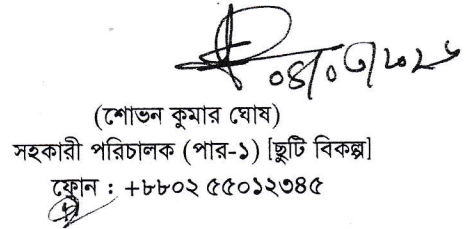 ০৪/০৩/২০২৬
(শোভন কুমার ঘোষ)
সহকারী পরিচালক (পার-১) [ছুটি বিকল্প]
ফোন : +৮৮০২ ৫৫০১২৩৪৫